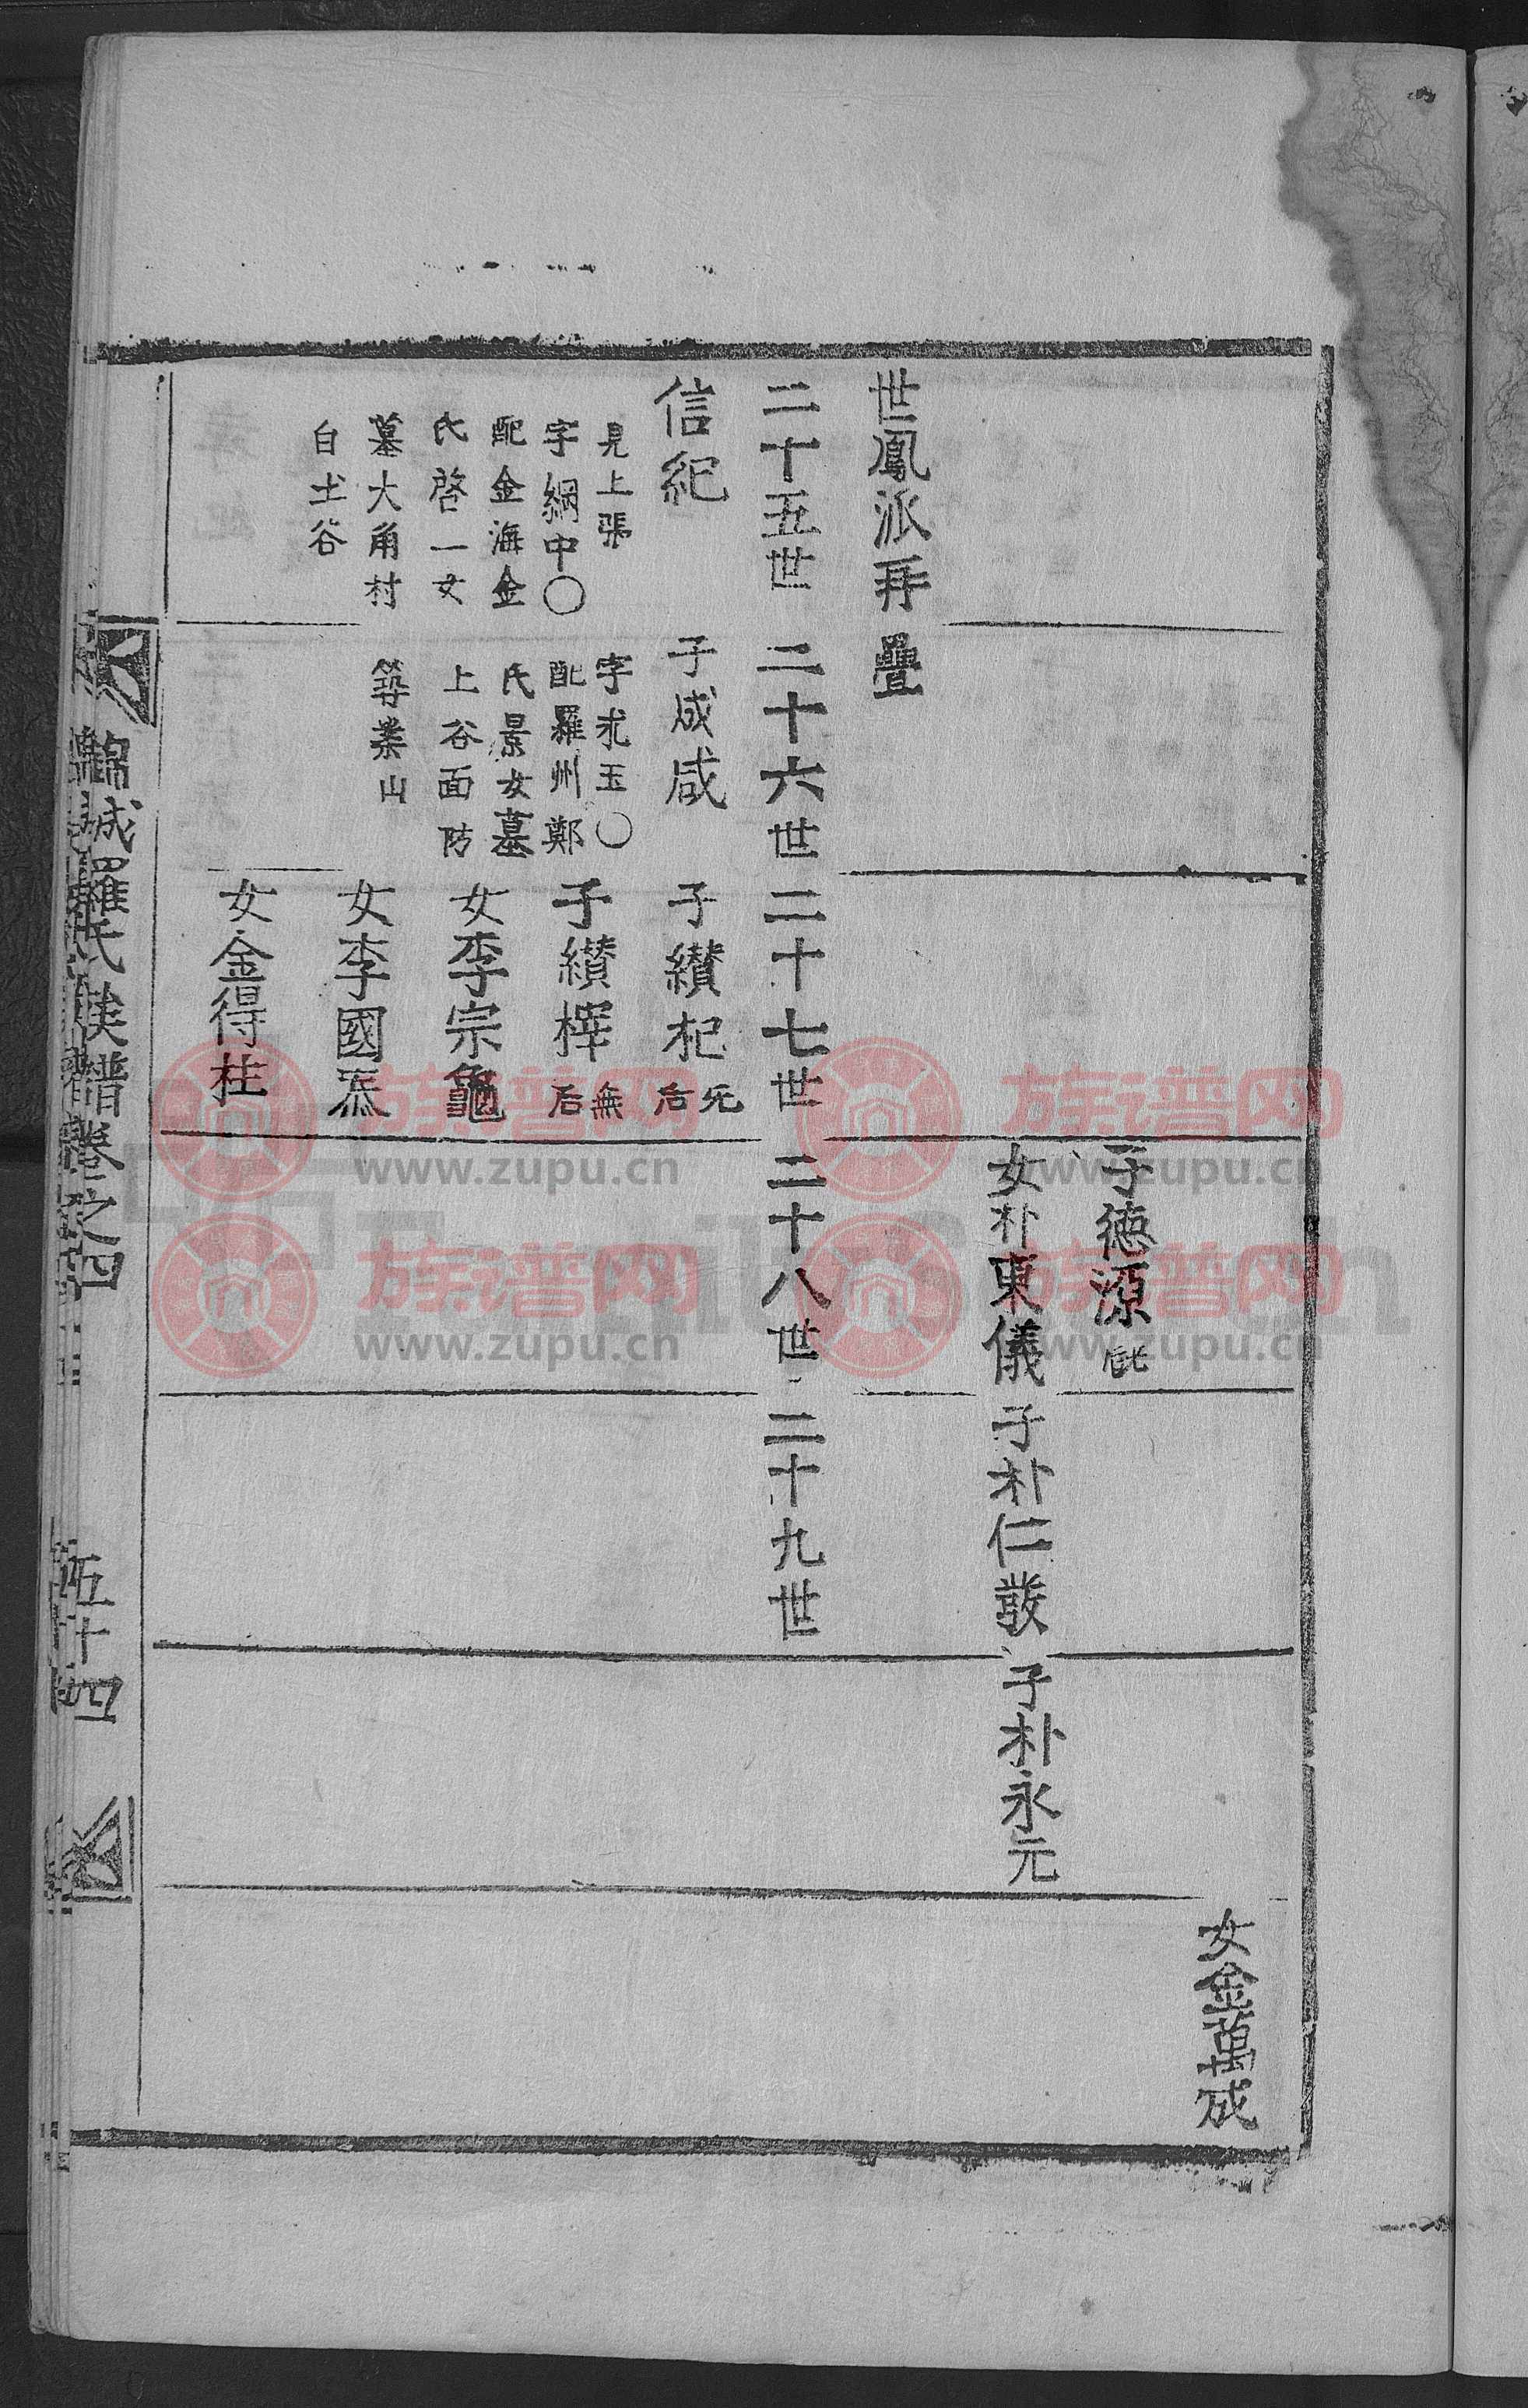 女金萬成
子德源
女朴東儀
子朴仁發
子朴永元
世鳳派再疊
二十五世
二十六世
二十七世
二十八世
二十九世
信紀
見上張
字綱中〇
配金海金
氏啓一女
墓大角村
白土谷
子成咸
字永玉〇
配羅州鄭
氏景女墓
上谷面防
築業山
子纘杞
无后
子纘樨
無后
女李宗龜
女李國烝
女金得柱
錦城羅氏族譜卷之四
五十四
族谱网
www.zupu.cn
族谱网
www.zupu.cn
族谱网
www.zupu.cn
族谱网
www.zupu.cn